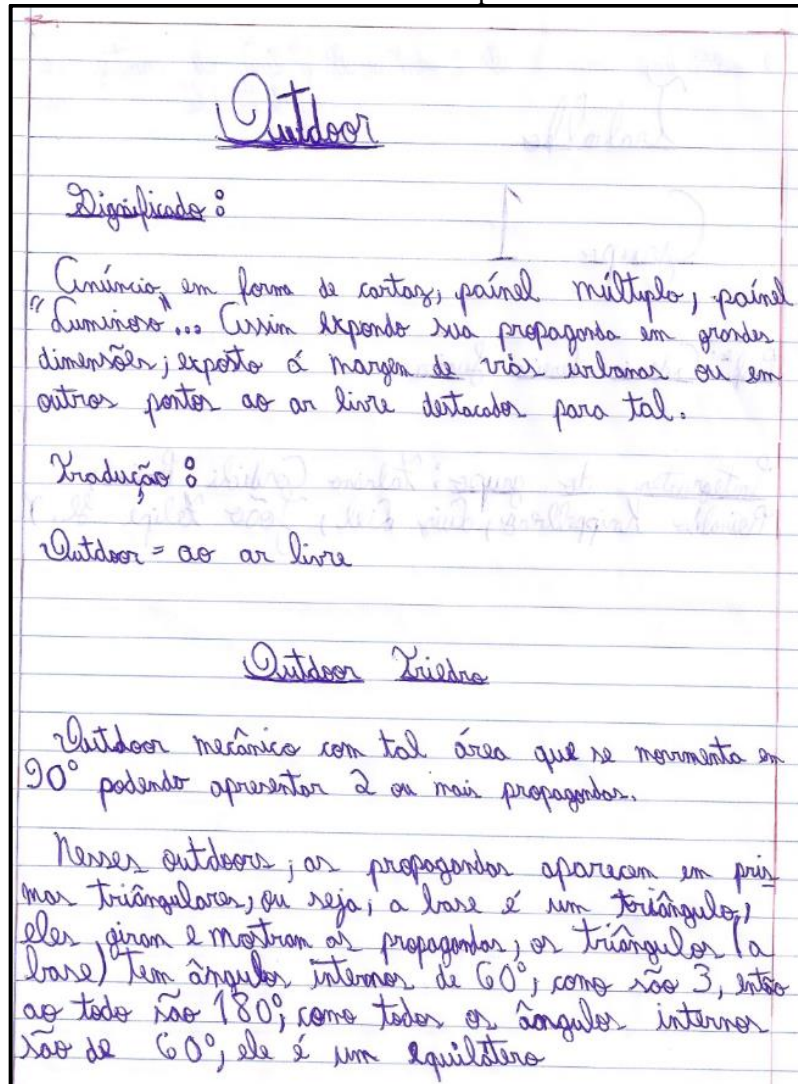 Outdoor
Significado:
Anúncio, em forma de cartaz, paínel múltiplo, paínel
"Luminoso"... Assim expondo sua propaganda em grandes
dimensões; exposto á margem de viás urbanas ou em
outros pontos ao ar livre destacados para tal.
Tradução:
Outdoor = ao ar livre
Outdoor Triedro
Outdoor mecânico com tal área que se movimenta em
90° podendo apresentar 2 ou mais propagandas.
Nesses outdoors, as propagandas aparecem em pris
mas triângulares, ou seja, a base é um triângulo,
eles giram e mostram as propagandas, os triângulos (a
base) tem ângulos internos de 60°, como são 3, então
ao todo são 180°, como todos os ângulos internos
são de 60°, ele é um equilátero